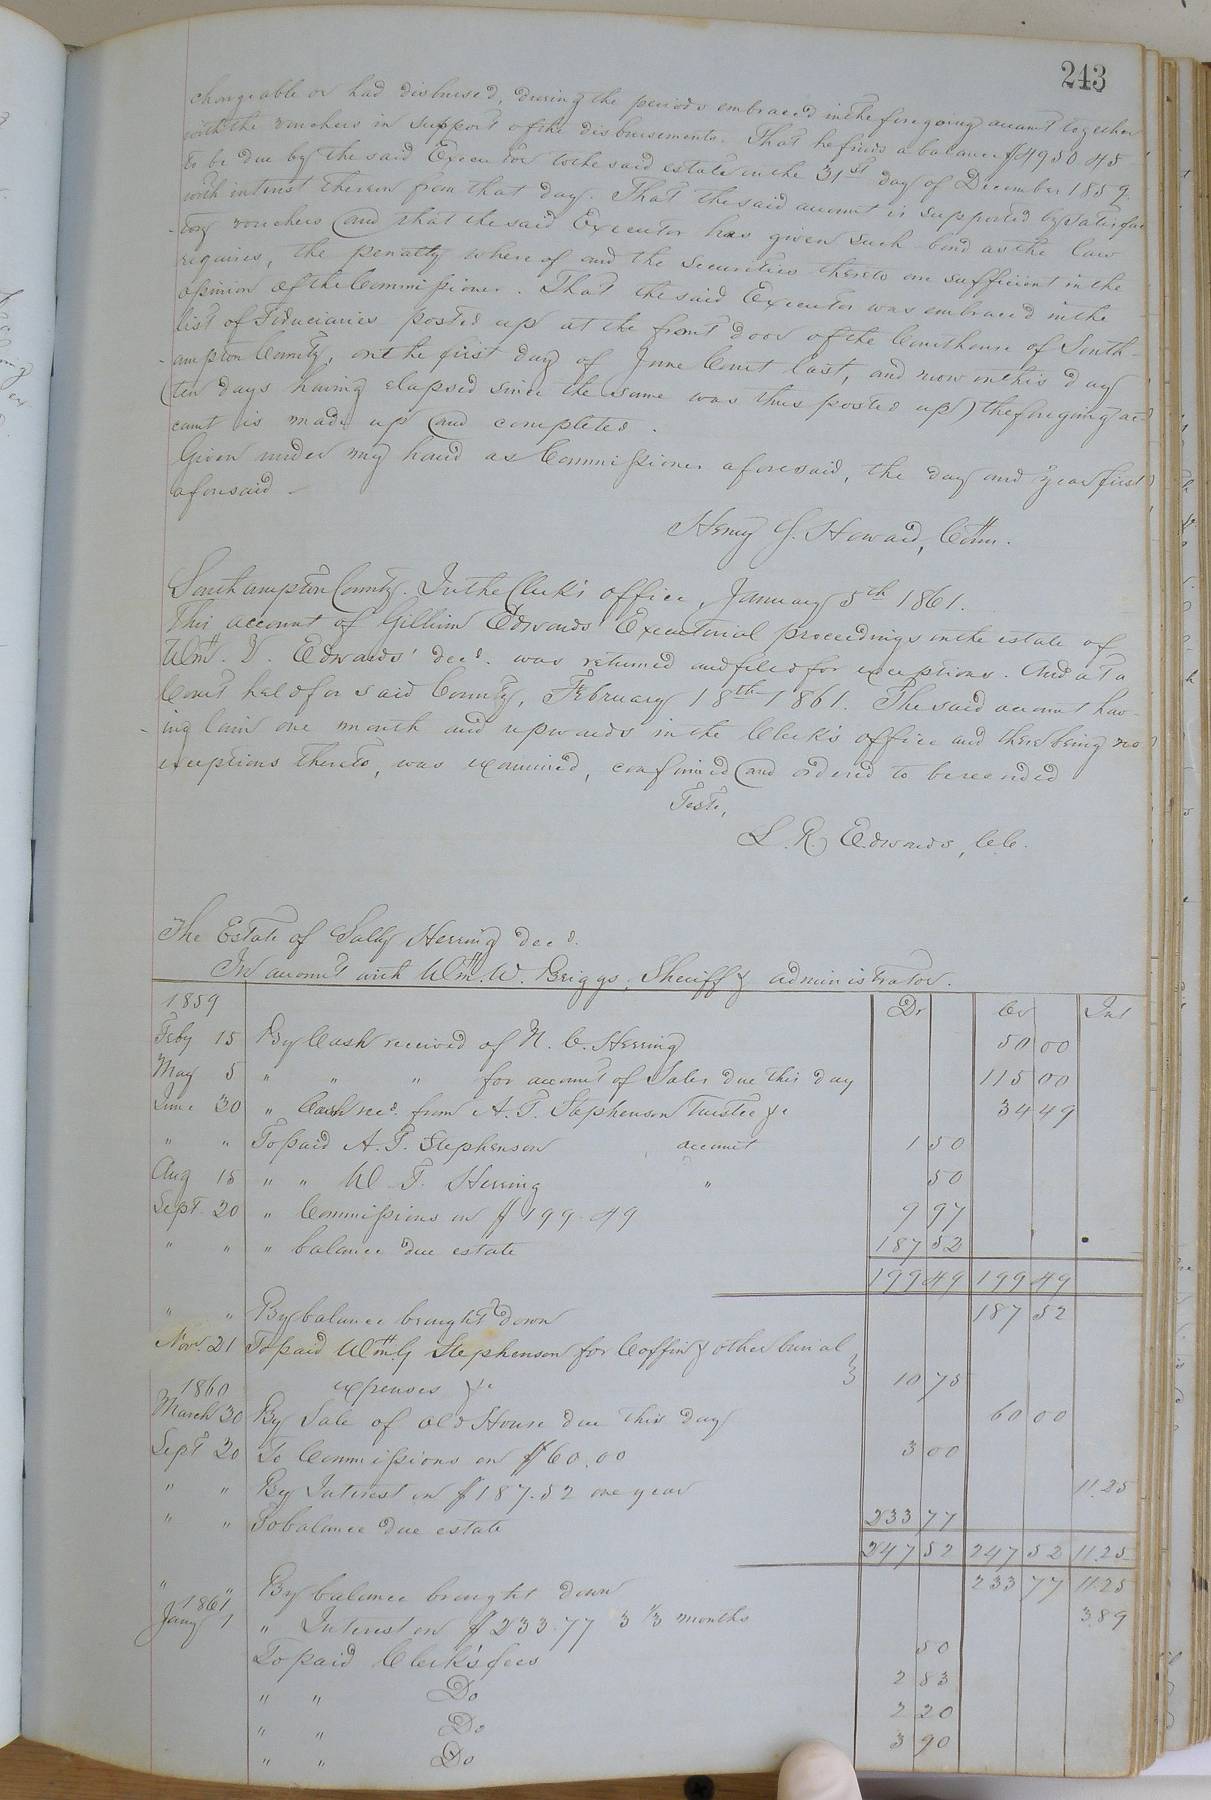 243
chargeable or had disbursed, during the periods embraced in the foregoing account together
with the vouchers in support of the disbursements. That he finds a balance $4950.45
to be due by the said Executor to the said estate on the 31st day of December 1859
with interest thereon from that day. That the said account is supported by satisfac
-tory vouchers and that the said Executor has given such bond as the law
requires, the penalty whereof and the securities thereto are sufficient in the
opinion of the Commissioner. That the said Executor was embraced in the
list of Fiduciaries posted up at the front door of the Courthouse of South-
-ampton County, on the first day of June Court last, and now on this day
(ten days having elapsed since the same was thus posted up) the foregoing ac-
count is made up and completed.
Given under my hand as Commissioner aforesaid, the day and year first
aforesaid –
Henry J. Howard, Comr.
Southampton County. In the Clerk's office, January 5th 1861.
This account of Gilliam Edwards Executorial proceedings on the estate of
Wm. D. Edwards' decd. was returned and filed for exceptions. And at a
Court held for said County, February 18th 1861. The said account hav-
-ing lain one month and upwards in the Clerk's office and there being no
exceptions thereto, was examined, confirmed and ordered to be recorded
Teste,
L. R. Edwards, C.C.
The Estate of Sally Herring decd.
In account with Wm. W. Briggs, Sheriff & administrator.
1859 Dr Cr Int
Feby 15 By Cash received of N. C. Herring 50 00
May 5 " " " for account of Sales due this day 115 00
June 30 " Cash recd. from A. T. Stephenson Trustee &c 34 49
" " To paid A. T. Stephenson account 1 50
Aug 15 " " W. T. Herring " 50
Sept. 20 " Commissions on $199.49 9 97
" " " balance due estate 187 52
199 49 199 49
" " By balance brought down 187 52
Nov. 21 To paid Wm. G Stephenson for Coffin & other burial
expenses &c 10 75
1860
March 30 By Sale of old House due this day 60 00
Sept 20 To Commissions on $60.00 3 00
" " By Interest on $187.52 one year 11.25
" " To balance due estate 233 77
247 52 247 52 11.25
" " By balance brought down 233 77 11.25
1861
Jany 1 " Interest on $233.77 3 1/3 months 3.89
To paid Clerk's fees 50
" " Do 2 83
" " Do 2 20
" " Do 3 90